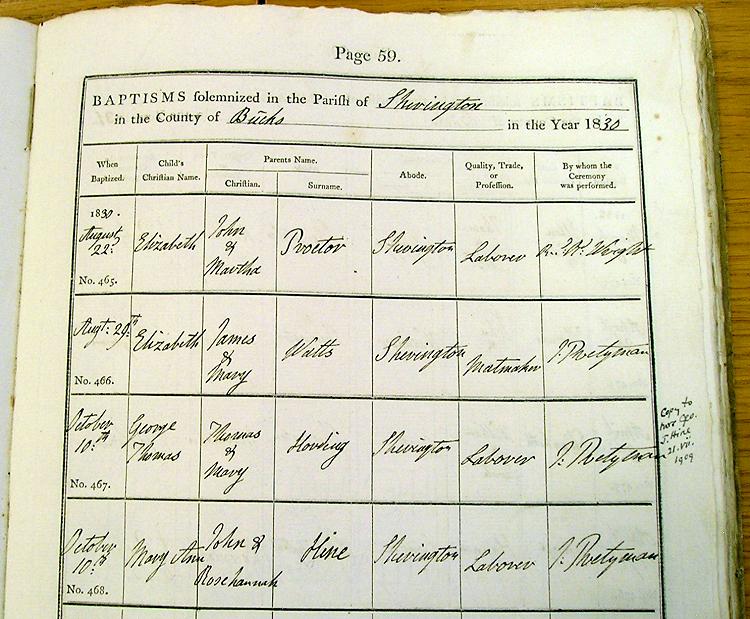 Page 59.
BAPTISMS solemnized in the Parish of Sherington
in the County of Bucks in the Year 1830
When Baptized.
Child's Christian Name.
Parents Name.
Christian.
Surname.
Abode.
Quality, Trade, or Profession.
By whom the Ceremony was performed.
1830.
August 22.
No. 465.
Elizabeth
John & Martha
Proctor
Sherington
Laborer
Wm. Wright
Augt. 29th
No. 466.
Elizabeth
James & Mary
Watts
Sherington
Matmaker
J. Pretyman
October 10th
No. 467.
George Thomas
Thomas & Mary
Sherington
Laborer
J. Pretyman
October 10th
No. 468.
Mary Ann
John & Rosehannah
Hine
Sherington
Laborer
J. Pretyman
Copy to
Geo.
J. Hine
21.VII.
1909